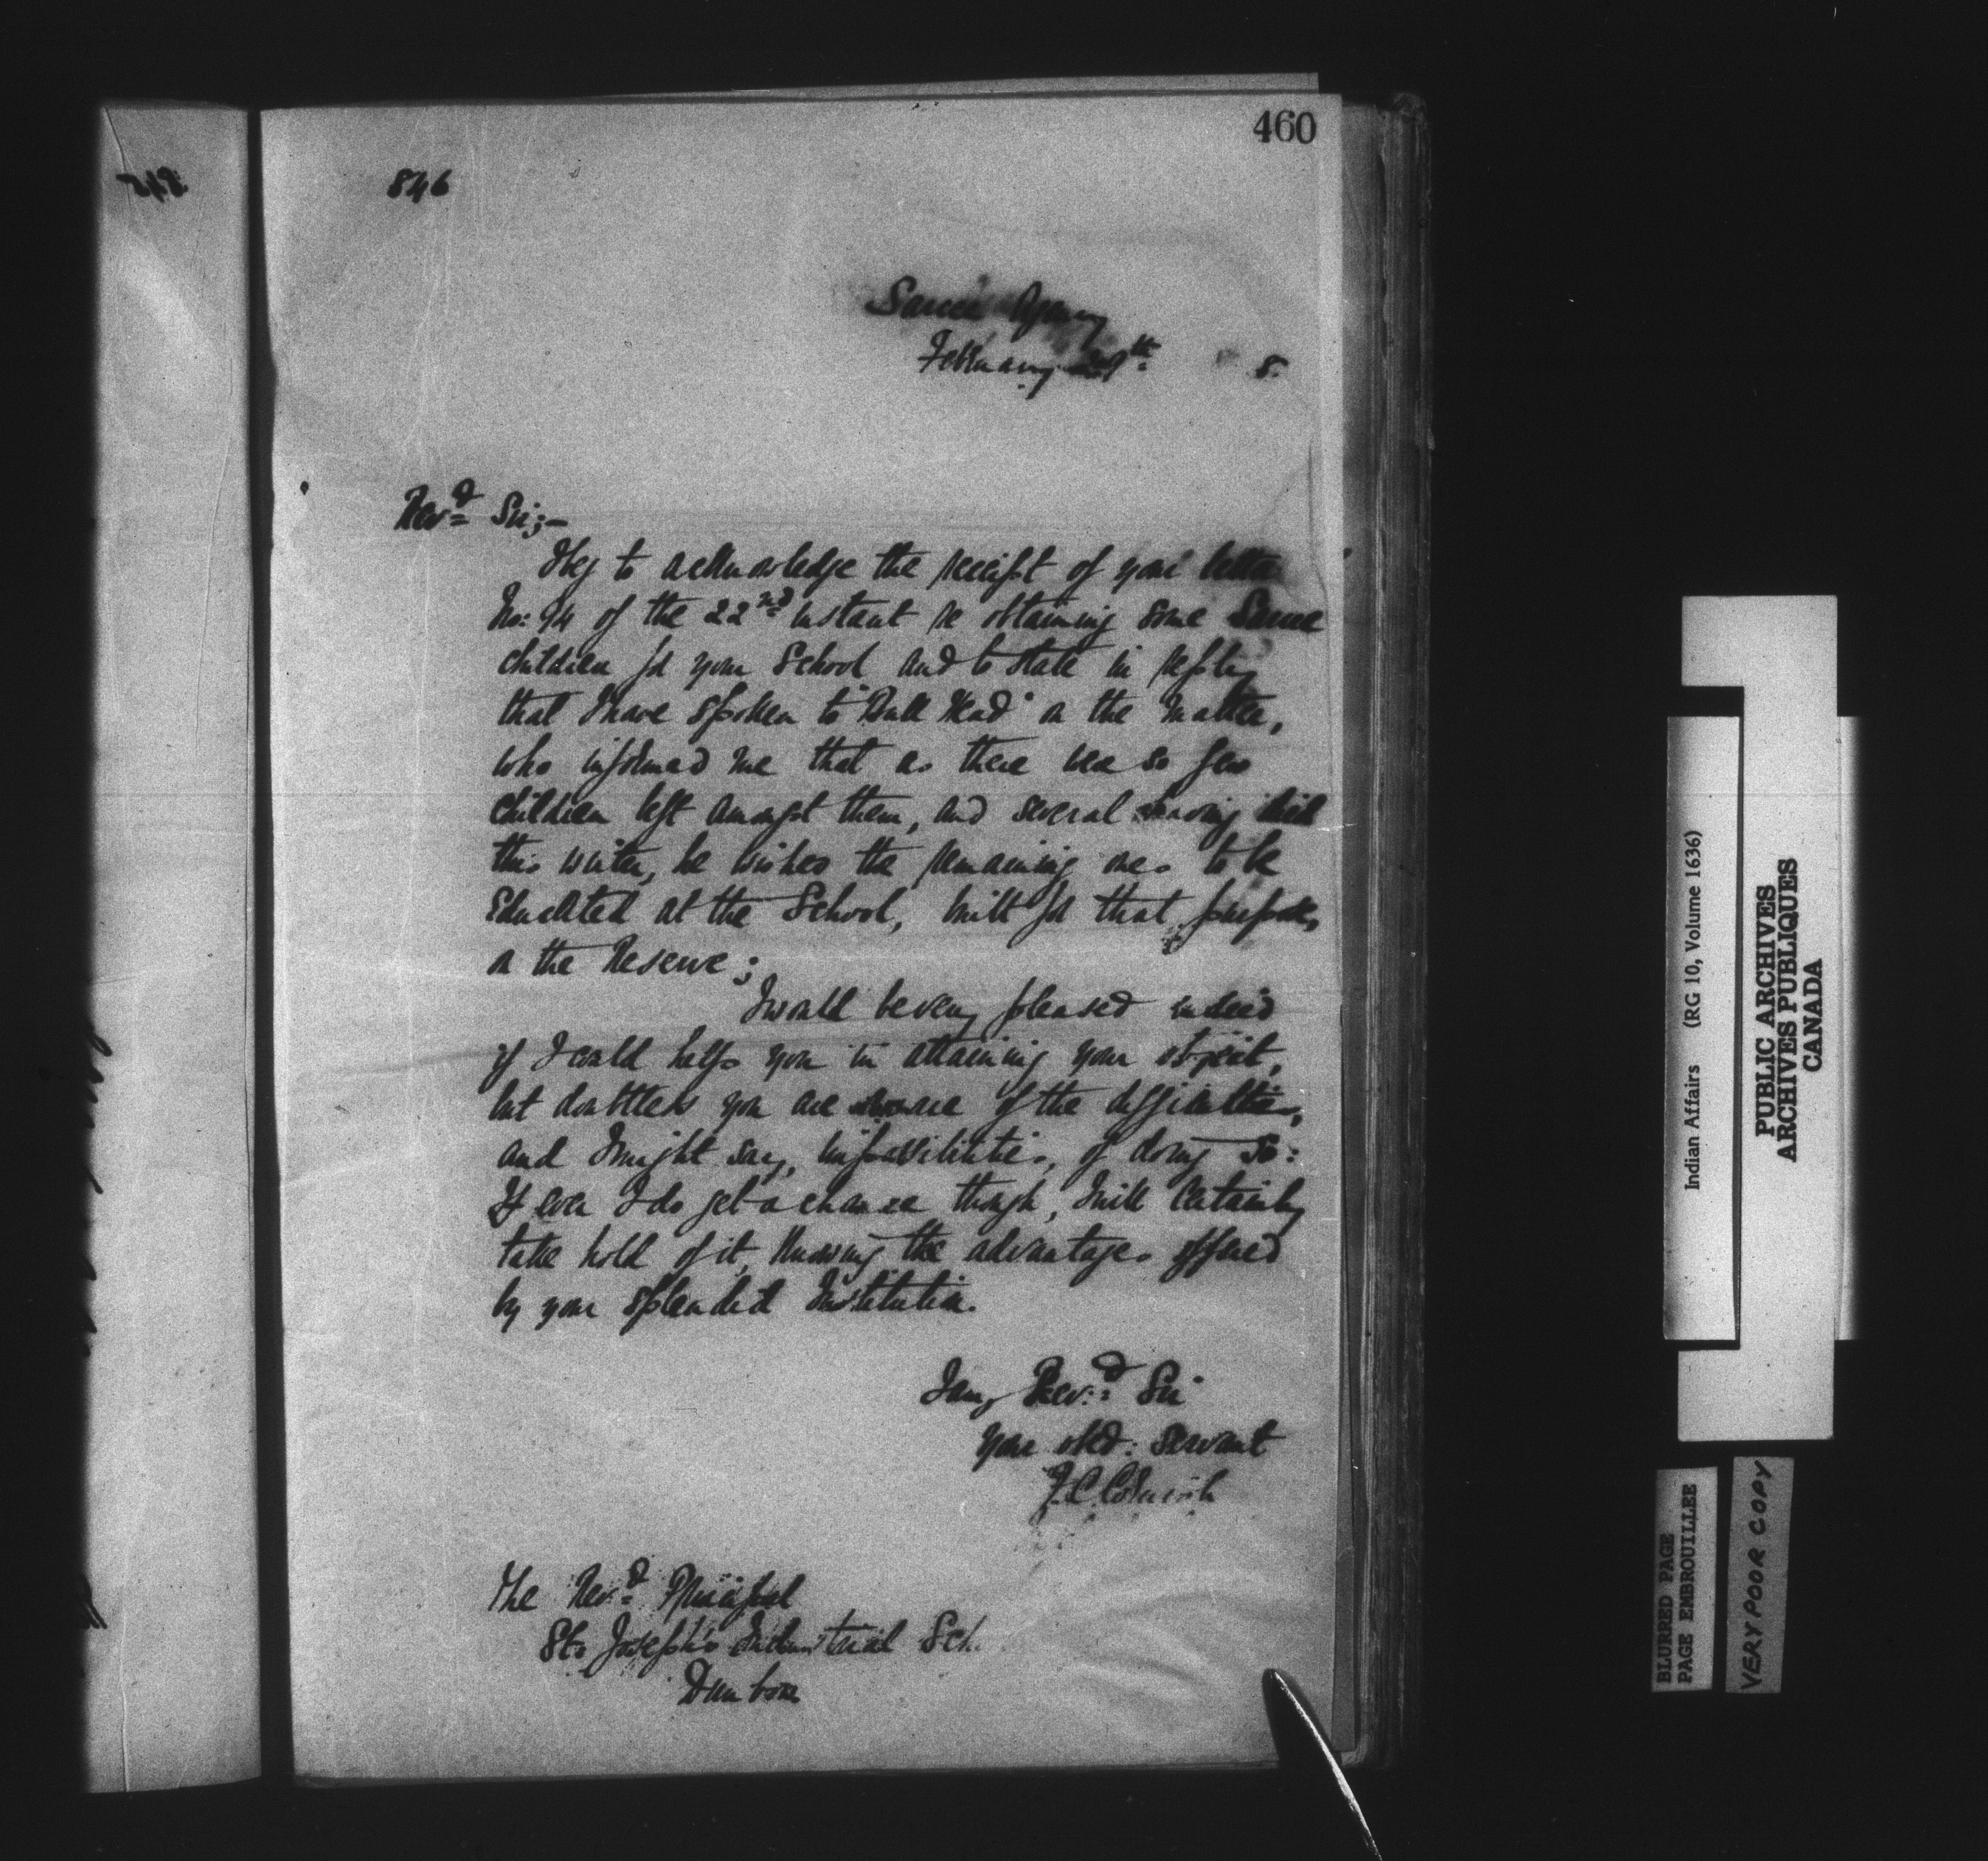 460
846
Sarcee Agency
February 29th 8.
Revd Sir;-
I beg to acknowledge the receipt of your letter
No: 94 of the 22nd instant re obtaining some Sarcee
children for your School and to state in reply
that I have spoken to "Bull Head" on the matter,
who informed me that as there were so few
children left amongst them, and several having died
this winter, he wishes the remaining ones to be
educated at the School, built for that purpose,
on the Reserve;
I would be very pleased indeed
if I could help you in attaining your object,
but doubtless you are aware of the difficulties,
and I might say, impossibilities, of doing so:
If ever I do get a chance though, I will certainly
take hold of it, knowing the advantages offered
by your splendid Institution.
I am, Revd: Sir
Your obed: servant
F.C. Cornish
The Revd Principal
St. Joseph's Industrial Sch.
Dunbow
Indian Affairs (RG 10, Volume 1636)
PUBLIC ARCHIVES
ARCHIVES PUBLIQUES
CANADA
BLURRED PAGE
PAGE EMBROUILLEE
VERY POOR COPY